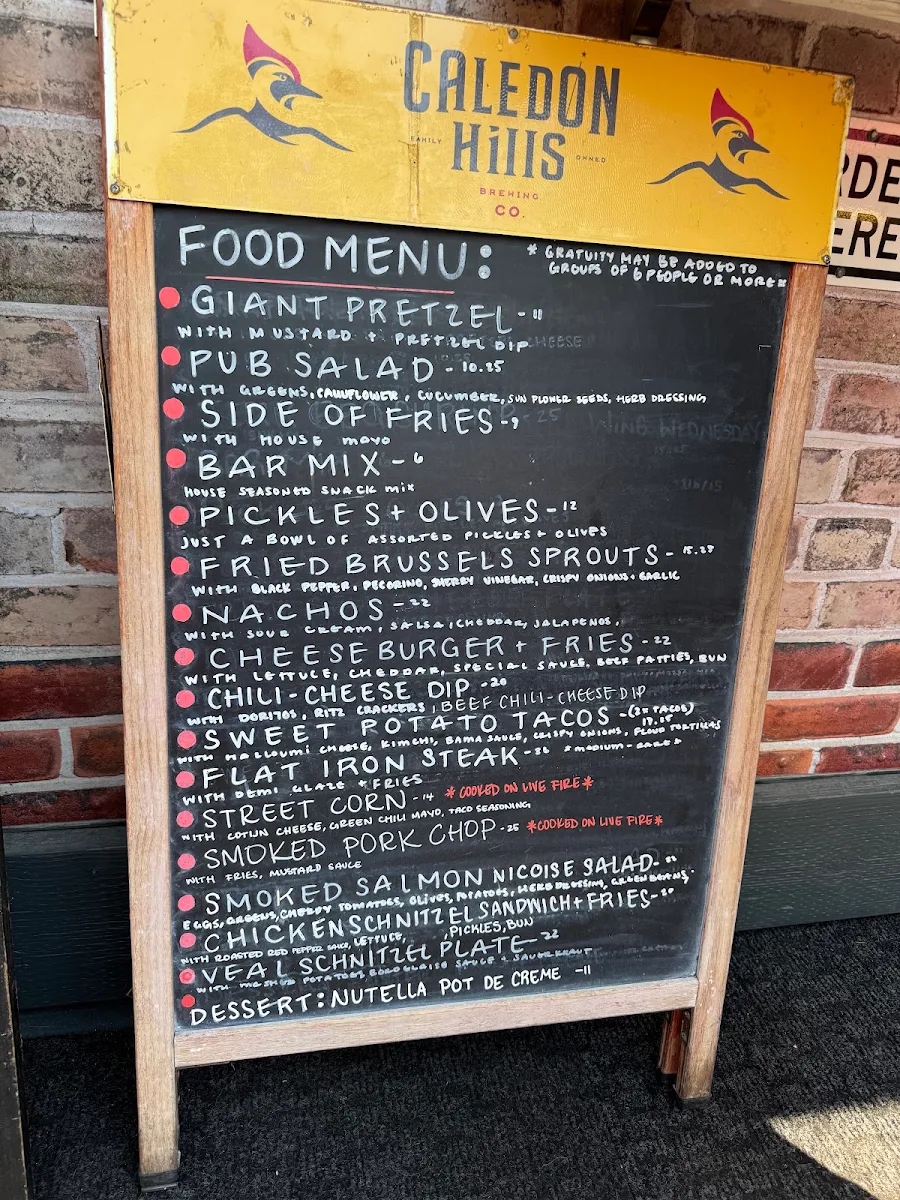 CALEDON
FAMILY HIllS OWNED
BREWING
CO.
RDE
ERE
FOOD MENU:
* GRATUITY MAY BE ADDED TO
GROUPS OF 6 PEOPLE OR MORE *
GIANT PRETZEL - 11
WITH MUSTARD + PRETZEL DIP
PUB SALAD - 10.25
WITH GREENS, CAULIFLOWER, CUCUMBER, SUN FLOWER SEEDS, HERB DRESSING
SIDE OF FRIES - 9
WITH HOUSE mayo
WING WEDNESDAY
BAR MIX - 6
HOUSE SEASONED SNACK mix
PICKLES + OLIVES - 12
JUST A BOWL OF ASSORTED PICKLES + OLIVES
FRIED BRUSSELS SPROUTS - 15.25
WITH BLACK PEPPER, PECORINO, SHERRY VINEGAR, CRISPY ONIONS + GARLIC
NACHOS - 22
WITH SOUR CREAM, SALSA, CHEDDAR, JALAPENOS,
CHEESEBURGER + FRIES - 22
WITH LETTUCE, CHEDDAR, SPECIAL SAUCE, BEEF PATTIES, BUN
CHILI-CHEESE DIP - 20
WITH DORITOS, RITZ CRACKERS, BEEF CHILI-CHEESE DIP
SWEET POTATO TACOS - (2x TACOS)
17.25
WITH HALLOUMI CHEESE, KIMCHI, BAMA SAUCE, CRISPY ONIONS, FLOUR TORTILLAS
FLAT IRON STEAK - *MEDIUM-RARE*
WITH DEMI GLAZE + FRIES
STREET CORN - 14 *COOKED ON LIVE FIRE*
WITH COTIJA CHEESE, GREEN CHILI MAYO, TACO SEASONING
SMOKED PORK CHOP - 25 *COOKED ON LIVE FIRE*
WITH FRIES, MUSTARD SAUCE
SMOKED SALMON NICOISE SALAD -
EGGS, GREENS, CHERRY TOMATOES, OLIVES, POTATOES, HERB DRESSING, GREEN BEANS,
CHICKEN SCHNITZEL SANDWICH + FRIES -
WITH ROASTED RED PEPPER SAUCE, LETTUCE, PICKLES, BUN
VEAL SCHNITZEL PLATE - 22
WITH MASHED POTATOES, SAUCE + SAUERKRAUT
DESSERT: NUTELLA POT DE CREME - 11